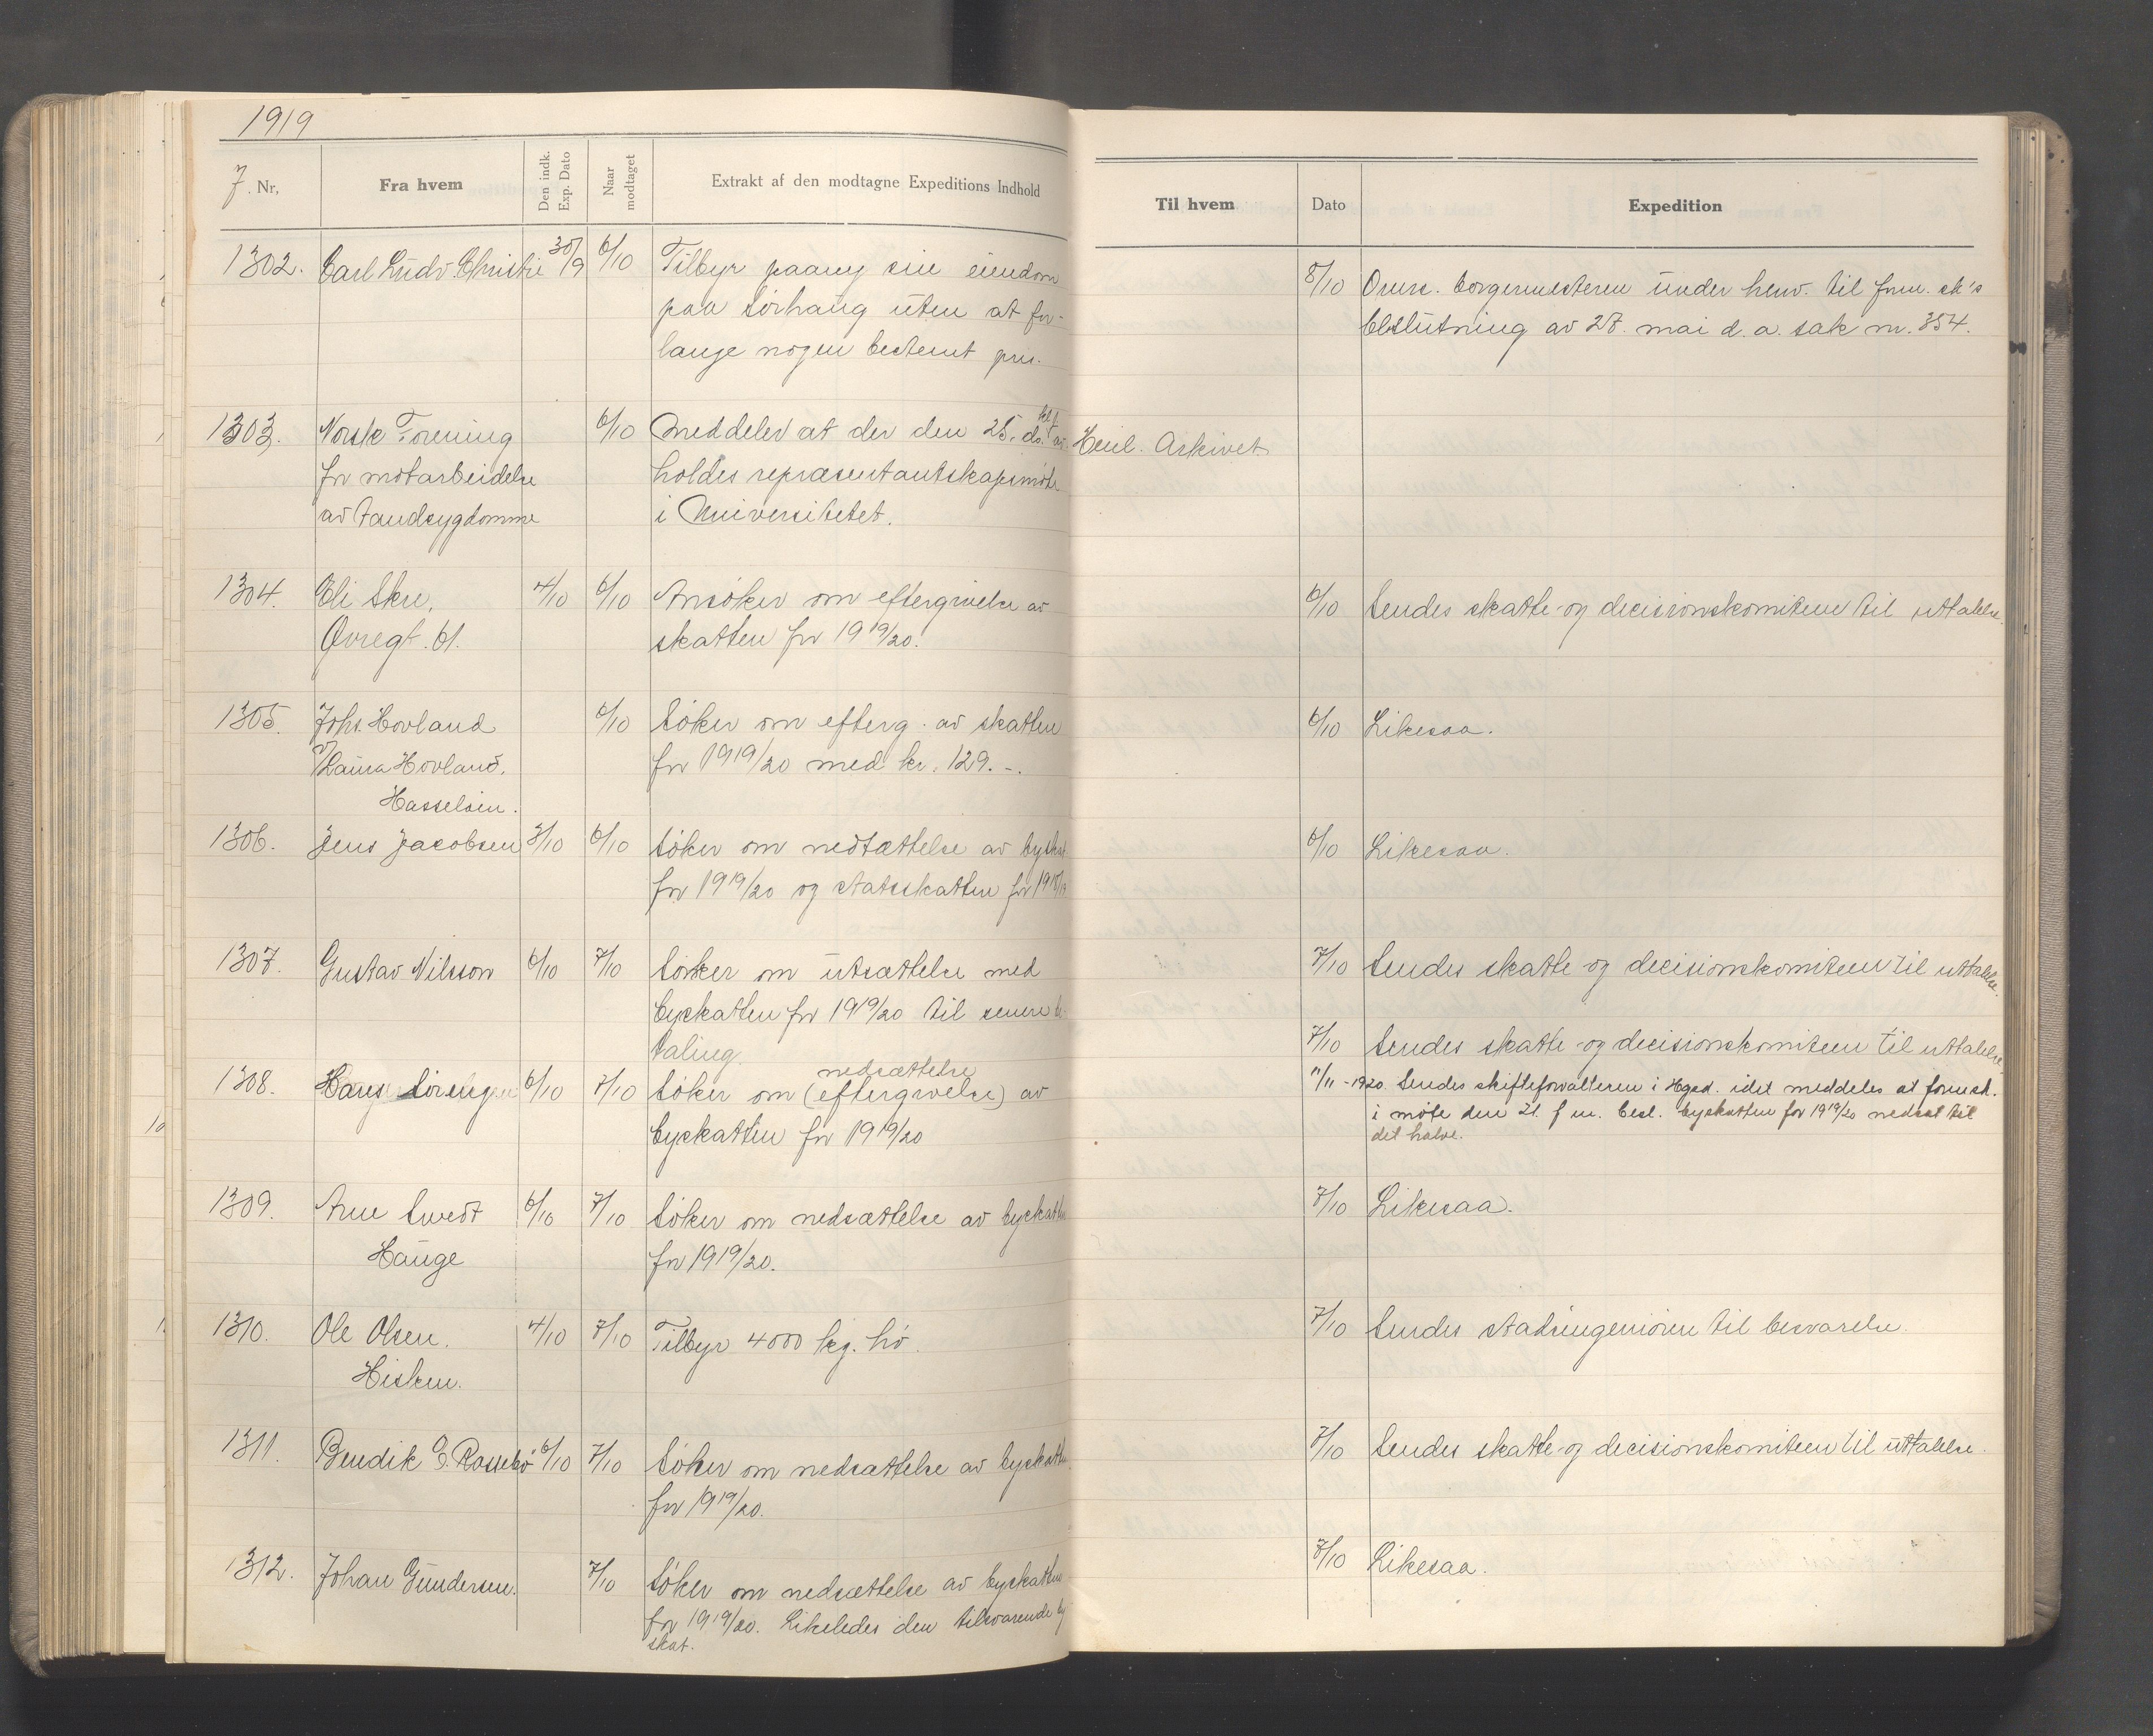 1919
J. Nr,
Fra hvem
Den indk. Exp. Dato
Naar modtaget
Extrakt af den modtagne Expeditions Indhold
Til hvem
Dato
Expedition
1302. Carl Ludv. Christie 30/9 6/10 Tilbyr paany sin eiendom
paa Sørhaug uten at for-
lange nogen bestemt pris.
8/10 Overs. borgermesteren under henv. til form.sk's
beslutning av 27. mai d.a. sak nr. 354.
1303. Norsk Forening 6/10 Meddeler at der den 25. ds. kl. 7 av
for motarbeidelse holdes repræsentantskapsmøte
av tandsygdomme i Universitetet.
Henl. Arkivet
1304. Eli Skre, 4/10 6/10 Ansøker om eftergivelse av
Øvregt. 61. skatten for 1919/20.
6/10 Sendes skatte- og decisionskomiteen til uttalelse.
1305. Johs. Hovland 6/10 Søker om efterg. av skatten
v/ Laura Hovland, for 1919/20 med kr. 129.-.
Hasseløen.
6/10 Likesaa.
1306. Jens Jacobsen 3/10 6/10 Søker om nedsættelse av byskat
for 1919/20 og statsskatten for 1918/19
6/10 Likesaa.
1307. Gustav Nilsson 6/10 7/10 Søker om utsættelse med
byskatten for 1919/20 til senere be-
taling.
7/10 Sendes skatte- og decisionskomiteen til uttalelse.
1308. Hans 6/10 7/10 Søker om (eftergivelse) nedsættelse av
byskatten for 1919/20
7/10 Sendes skatte- og decisionskomiteen til uttalelse
11/11 - 1920. Sendes skifteforvalteren i Hgsd. idet meddeles at formsk.
i møte den 21. f.m. besl. byskatten for 1919/20 nedsat til
det halve.
1309. Arne Smedt 6/10 7/10 Søker om nedsættelse av byskatten
Hauge for 1919/20.
7/10 Likesaa.
1310. Ole Olsen. 4/10 7/10 Tilbyr 4000 kg. hø.
Hisken.
7/10 Sendes stadsingeniøren til besvarelse.
1311. Bendik G. Rossebø 6/10 7/10 Søker om nedsættelse av byskatten
for 1919/20.
7/10 Sendes skatte- og decisionskomiteen til uttalelse.
1312. Johan Gundersen. 7/10 Søker om nedsættelse av byskatten
for 1919/20. Likeledes den tilsvarende by
skat.
7/10 Likesaa.